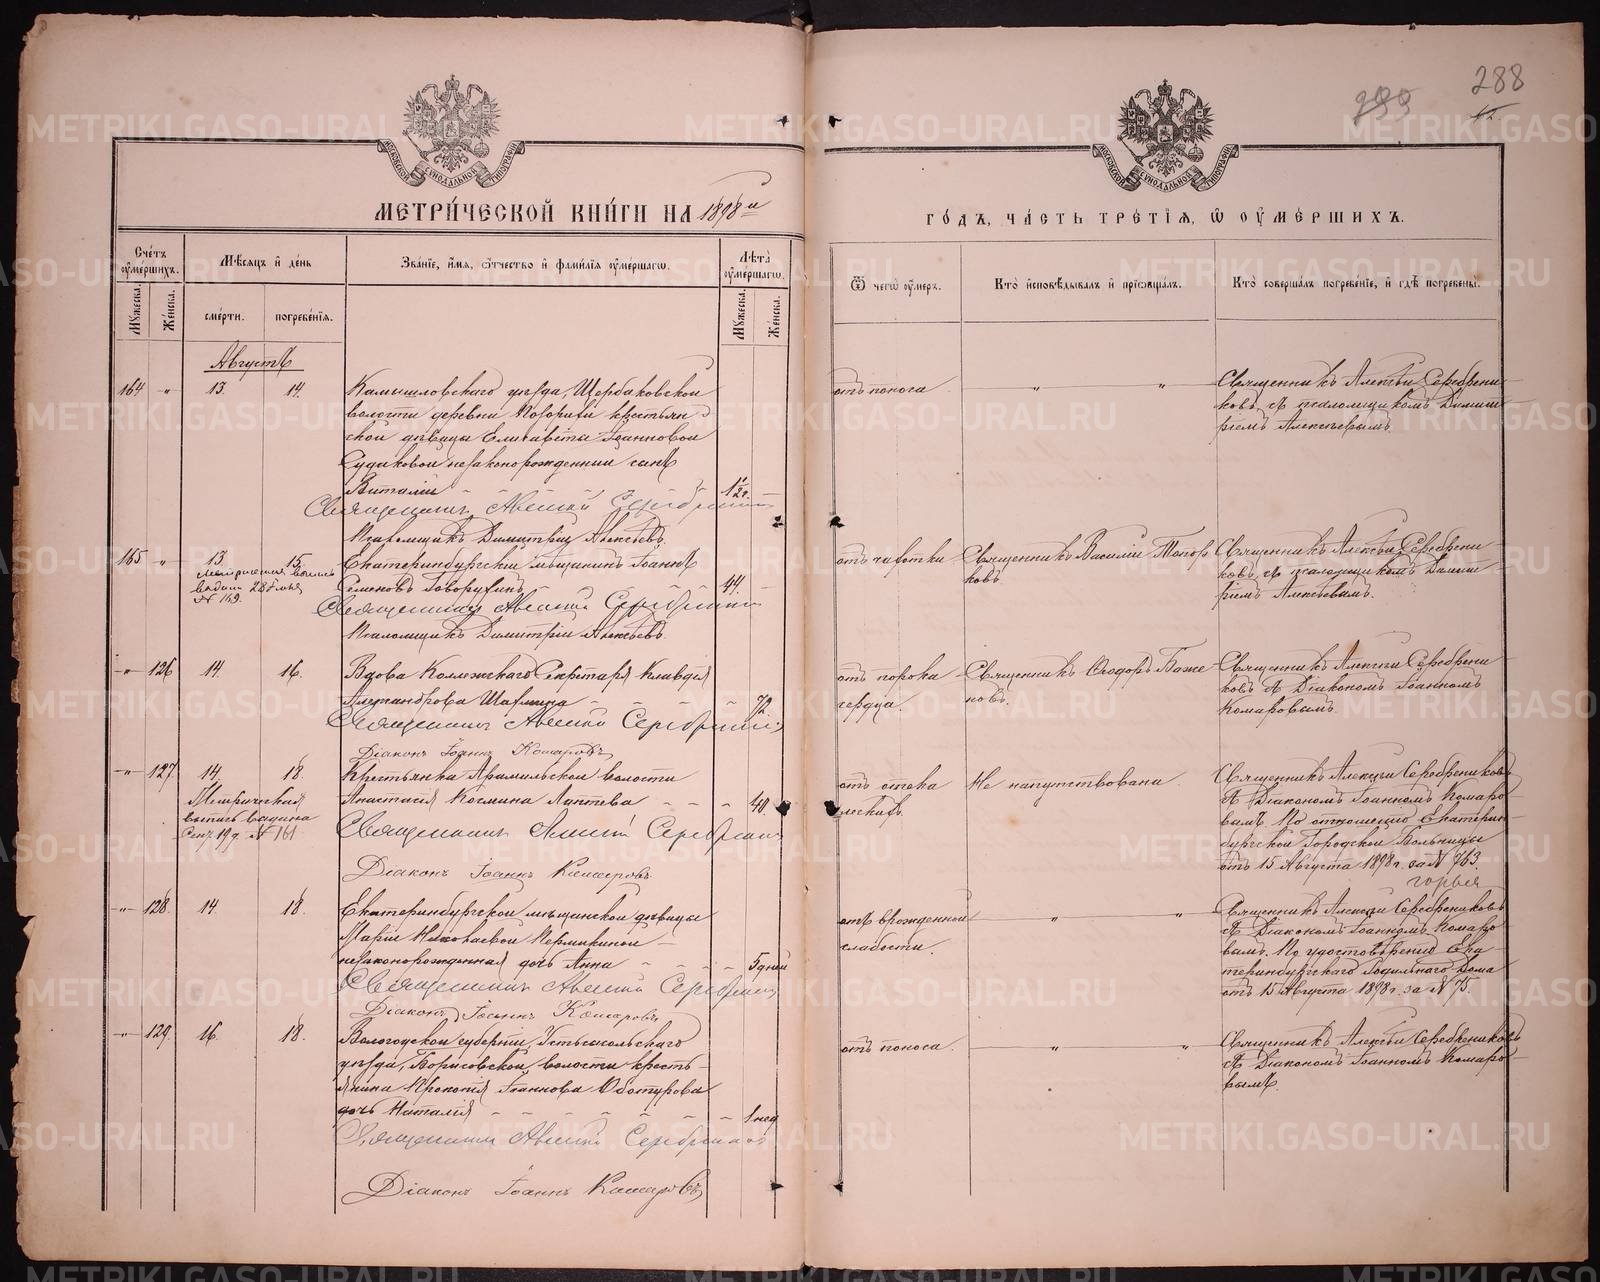 288
МЕТРИЧЕСКОЙ КНИГИ НА 1898 й
ГОДЪ, ЧАСТЬ ТРЕТІЯ, Ѿ ОУМЕРШИХЪ.
МОСКОВСКОЙ СѴНОДАЛЬНОЙ ТИПОГРАФІИ
МОСКОВСКОЙ СѴНОДАЛЬНОЙ ТИПОГРАФІИ
Счетъ оумершихъ.
Мужеска.
Женска.
Мѣсяцъ и день
смерти.
погребенія.
Званіе, имя, отчество и фамилія оумершагѡ.
Лѣта оумершагѡ.
Мужеска.
Женска.
Ѿ чегѡ оумеръ.
Кто исповѣдывалъ и пріобщалъ.
Кто совершалъ погребеніе, и гдѣ погребены.
Августъ
164 " 13. 14.
Камышловскаго уѣзда, Щербаковской
волости деревни крестьян
ской дѣвицы Елисаветы Іоанновой
Судаковой незаконорожденный сынъ
Виталій 1 1/2 г.
Священникъ Алексій Серебренниковъ
Псаломщикъ Димитрій Алексѣевъ.
отъ поноса " "
Священникъ Алексѣй Серебрени-
ковъ, съ псаломщикомъ Димит
ріемъ Алексѣевымъ.
165 " 13. 15.
Метрическая выпись
выдана 28
№ 149.
Екатеринбургскій мѣщанинъ Іоаннъ
Семеновъ Говорухинъ 44.
Священникъ Алексій Серебренниковъ
Псаломщикъ Димитрій Алексѣевъ.
отъ чахотки
Священникъ Василій Топор
ковъ
Священникъ Алексѣй Серебрени
ковъ, съ псаломщикомъ Димит
ріемъ Алексѣевымъ.
" 126 14. 16.
Вдова Коллежскаго Секретаря Клавдія
Александрова 72.
Священникъ Алексій Серебренниковъ
Діаконъ Іоаннъ Комаровъ
отъ порока
сердца.
Священникъ Ѳеодоръ Баже
новъ.
Священникъ Алексѣй Серебрени
ковъ съ Діакономъ Іоанномъ
Комаровымъ
" 127 14. 18.
Метрическая
выпись выдана
Сент. 19 д. № 161.
Крестьянка Арамильской волости
Анастасія Космина Лаптева 40.
Священникъ Алексій Серебренниковъ
Діаконъ Іоаннъ Комаровъ
отъ отека
легкихъ.
Не напутствована.
Священникъ Алексѣй Серебрениковъ
съ Діакономъ Іоанномъ Комаро
вымъ. По отношенію Екатерин
бургской Городской Больницы
отъ 15 Августа 1898 г. за № 763.
" 128. 14. 18.
Екатеринбургской мѣщанской дѣвицы
Маріи Николаевой Пермикиной
незаконорожденная дочь Анна 5 дней
Священникъ Алексій Серебренниковъ
Діаконъ Іоаннъ Комаровъ
отъ врожденной
слабости. " "
Священникъ Алексѣй Серебрениковъ
съ Діакономъ Іоанномъ Комаро
вымъ. По удостовѣренію Ека
теринбургскаго Родильнаго Дома
отъ 15 Августа 1898 г. за № 75.
" 129. 16. 18.
Вологодской губерніи, Устьсысольскаго
уѣзда, Борисовской волости кресть-
янина Прокопія Іоаннова Обатурова
дочь Наталія 1 нед
Священникъ Алексій Серебренниковъ
Діаконъ Іоаннъ Комаровъ
отъ поноса. " "
Священникъ Алексѣй Серебрениковъ
съ Діакономъ Іоанномъ Комаро
вымъ.
METRIKI.GASO-URAL.RU